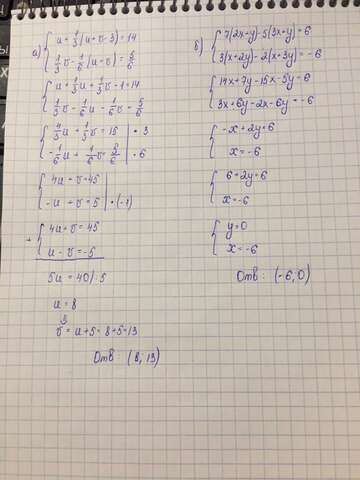 а) { u + 1/3 (u + v - 3) = 14
1/3 v - 1/6 (u - v) = 5/6
{ u + 1/3 u + 1/3 v - 1 = 14
1/3 v - 1/6 u - 1/6 v = 5/6
{ 4/3 u + 1/3 v = 15 | · 3
- 1/6 u + 1/6 v = 5/6 | · 6
{ 4u + v = 45
-u + v = 5 | · (-1)
+ { 4u + v = 45
u - v = -5
5u = 40 / : 5
u = 8
v = u + 5 = 8 + 5 = 13
Отв: (8; 13)
б) { 7(2x + y) - 5(3x + y) = 6
3(x + 2y) - 2(x + 3y) = -6
{ 14x + 7y - 15x - 5y = 6
3x + 6y - 2x - 6y = -6
{ -x + 2y = 6
x = -6
{ 6 + 2y = 6
x = -6
{ y = 0
x = -6
Отв: (-6, 0)